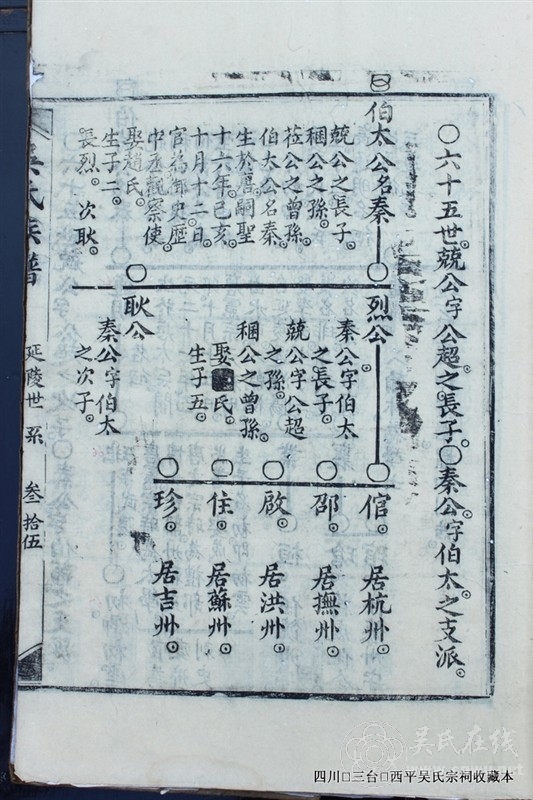 〇六十五世兢公字公超之長子〇秦公字伯太之支派
伯太公名秦
兢公之長子
稇公之孫
菘公之曾孫
伯太公名秦
生於唐嗣聖
十六年己亥
十月十二日
官為御史歷
中丞觀察使
娶趙氏
生子二
長烈 次耿
烈公
秦公字伯太
之長子
兢公字公超
之孫
稇公之曾孫
娶 氏
生子五
耿公
秦公字伯太
之次子
倌 居杭州
邵 居撫州
啟 居洪州
住 居蘇州
珍 居吉州
吳氏族譜 延陵世系 叁拾伍
吴氏在线
四川□三台□西平吴氏宗祠收藏本